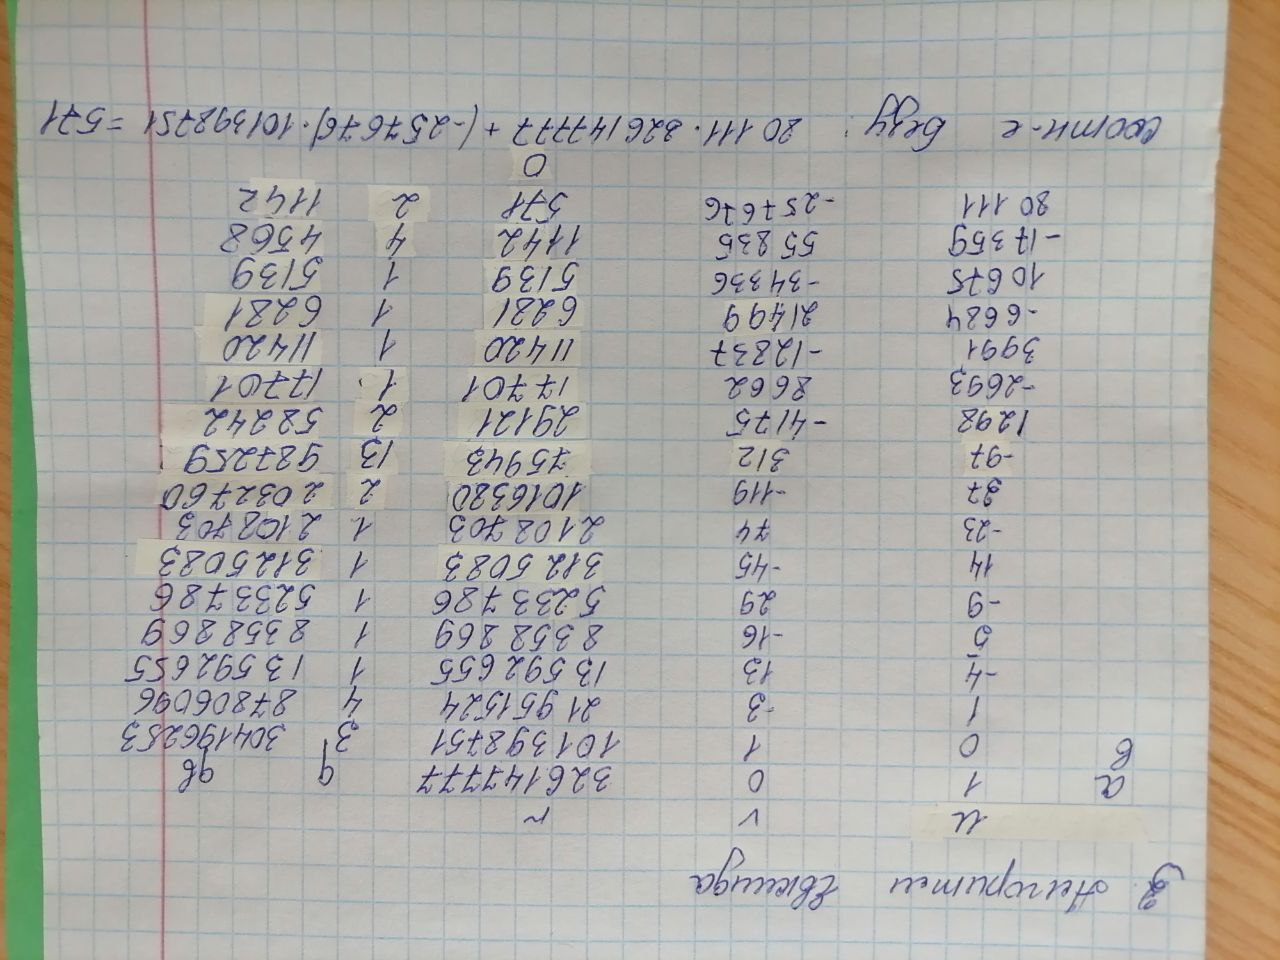 3. Алгоритм Евклида
u v r
a 1 0 326147777 q qb
b 0 1 101398751 3 304196253
1 -3 21951524 4 87806096
-4 13 13592655 1 13592655
5 -16 8358869 1 8358869
-9 29 5233786 1 5233786
14 -45 3125083 1 3125083
-23 74 2108703 1 2108703
37 -119 1016380 2 2032760
-97 312 75943 13 987259
1298 -4175 29121 2 58242
-2693 8662 17701 1 17701
3991 -12837 11420 1 11420
-6684 21499 6281 1 6281
10675 -34336 5139 1 5139
-17359 55835 1142 4 4568
80 111 -257676 571 2 1142
0
соотн-е Безу: 80 111 · 326147777 + (-257676) · 101398751 = 571